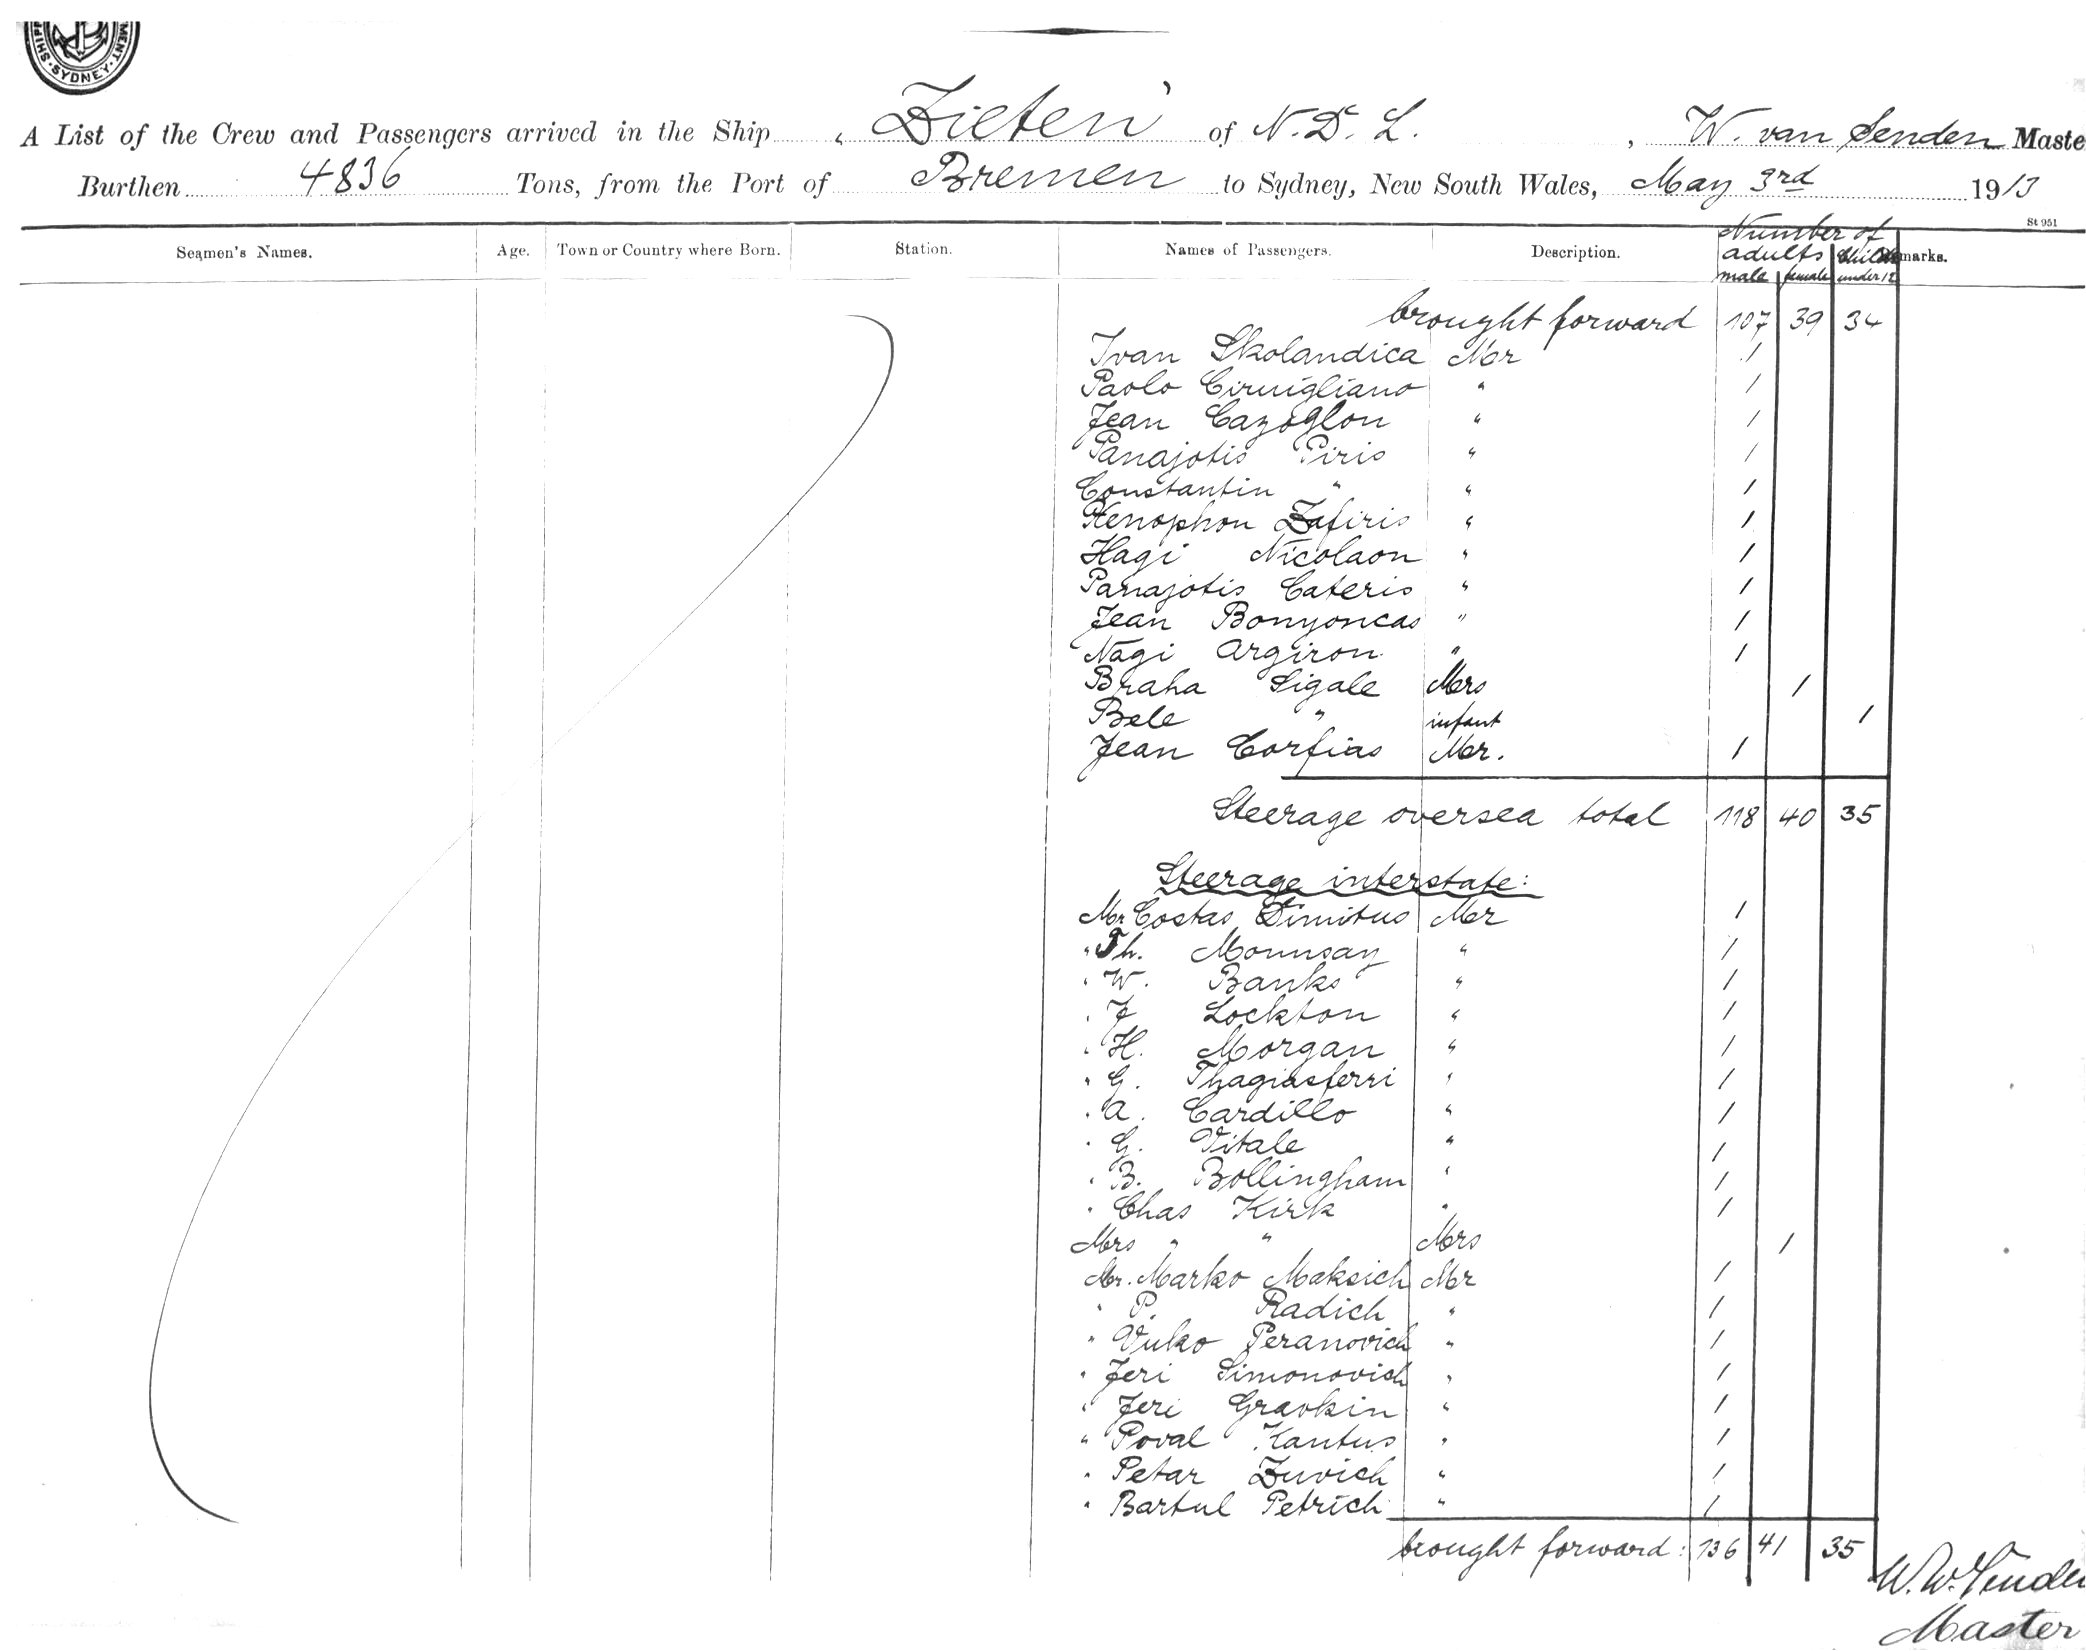 SHIP MENT · SYDNEY ·
A List of the Crew and Passengers arrived in the Ship „ Zieten" of N. D. L. , W. van Senden Maste
Burthen 4836 Tons, from the Port of Bremen to Sydney, New South Wales, May 3rd 1913
St 951
Seamen's Names. Age. Town or Country where Born. Station. Names of Passengers. Description. Number of adults male female under 12 marks.
brought forward 107 39 34
Ivan Skolandica Mr 1
Paolo Cirnigliano " 1
Jean Cazoglon " 1
Panajotis Piris " 1
Constantin " " 1
Xenophon Zafiris " 1
Hagi Nicolaon " 1
Panajotis Cateris " 1
Jean Bonyoncas " 1
Nagi Argiron " 1
Braha Sigale Mrs 1
Bele " infant 1
Jean Corfias Mr. 1
Steerage oversea total 118 40 35
Steerage interstate:
Mr Costas Dimitus Mr 1
" Th. Mounsay " 1
" W. Banks " 1
" F Lockton " 1
" H. Morgan " 1
" G. " 1
" A. Cardillo " 1
" G. Vitale " 1
" B. Bollingham " 1
" Chas Kirk " 1
Mrs " " Mrs 1
Mr. Marko Maksich Mr 1
" P. Radich " 1
" Vuko Peranovich " 1
" Jeri Simonovich " 1
" Jeri Gravkin " 1
" Poval Kantus " 1
" Petar Zuvich " 1
" Bartul Petrich " 1
brought forward: 136 41 35
W. v. Senden
Master